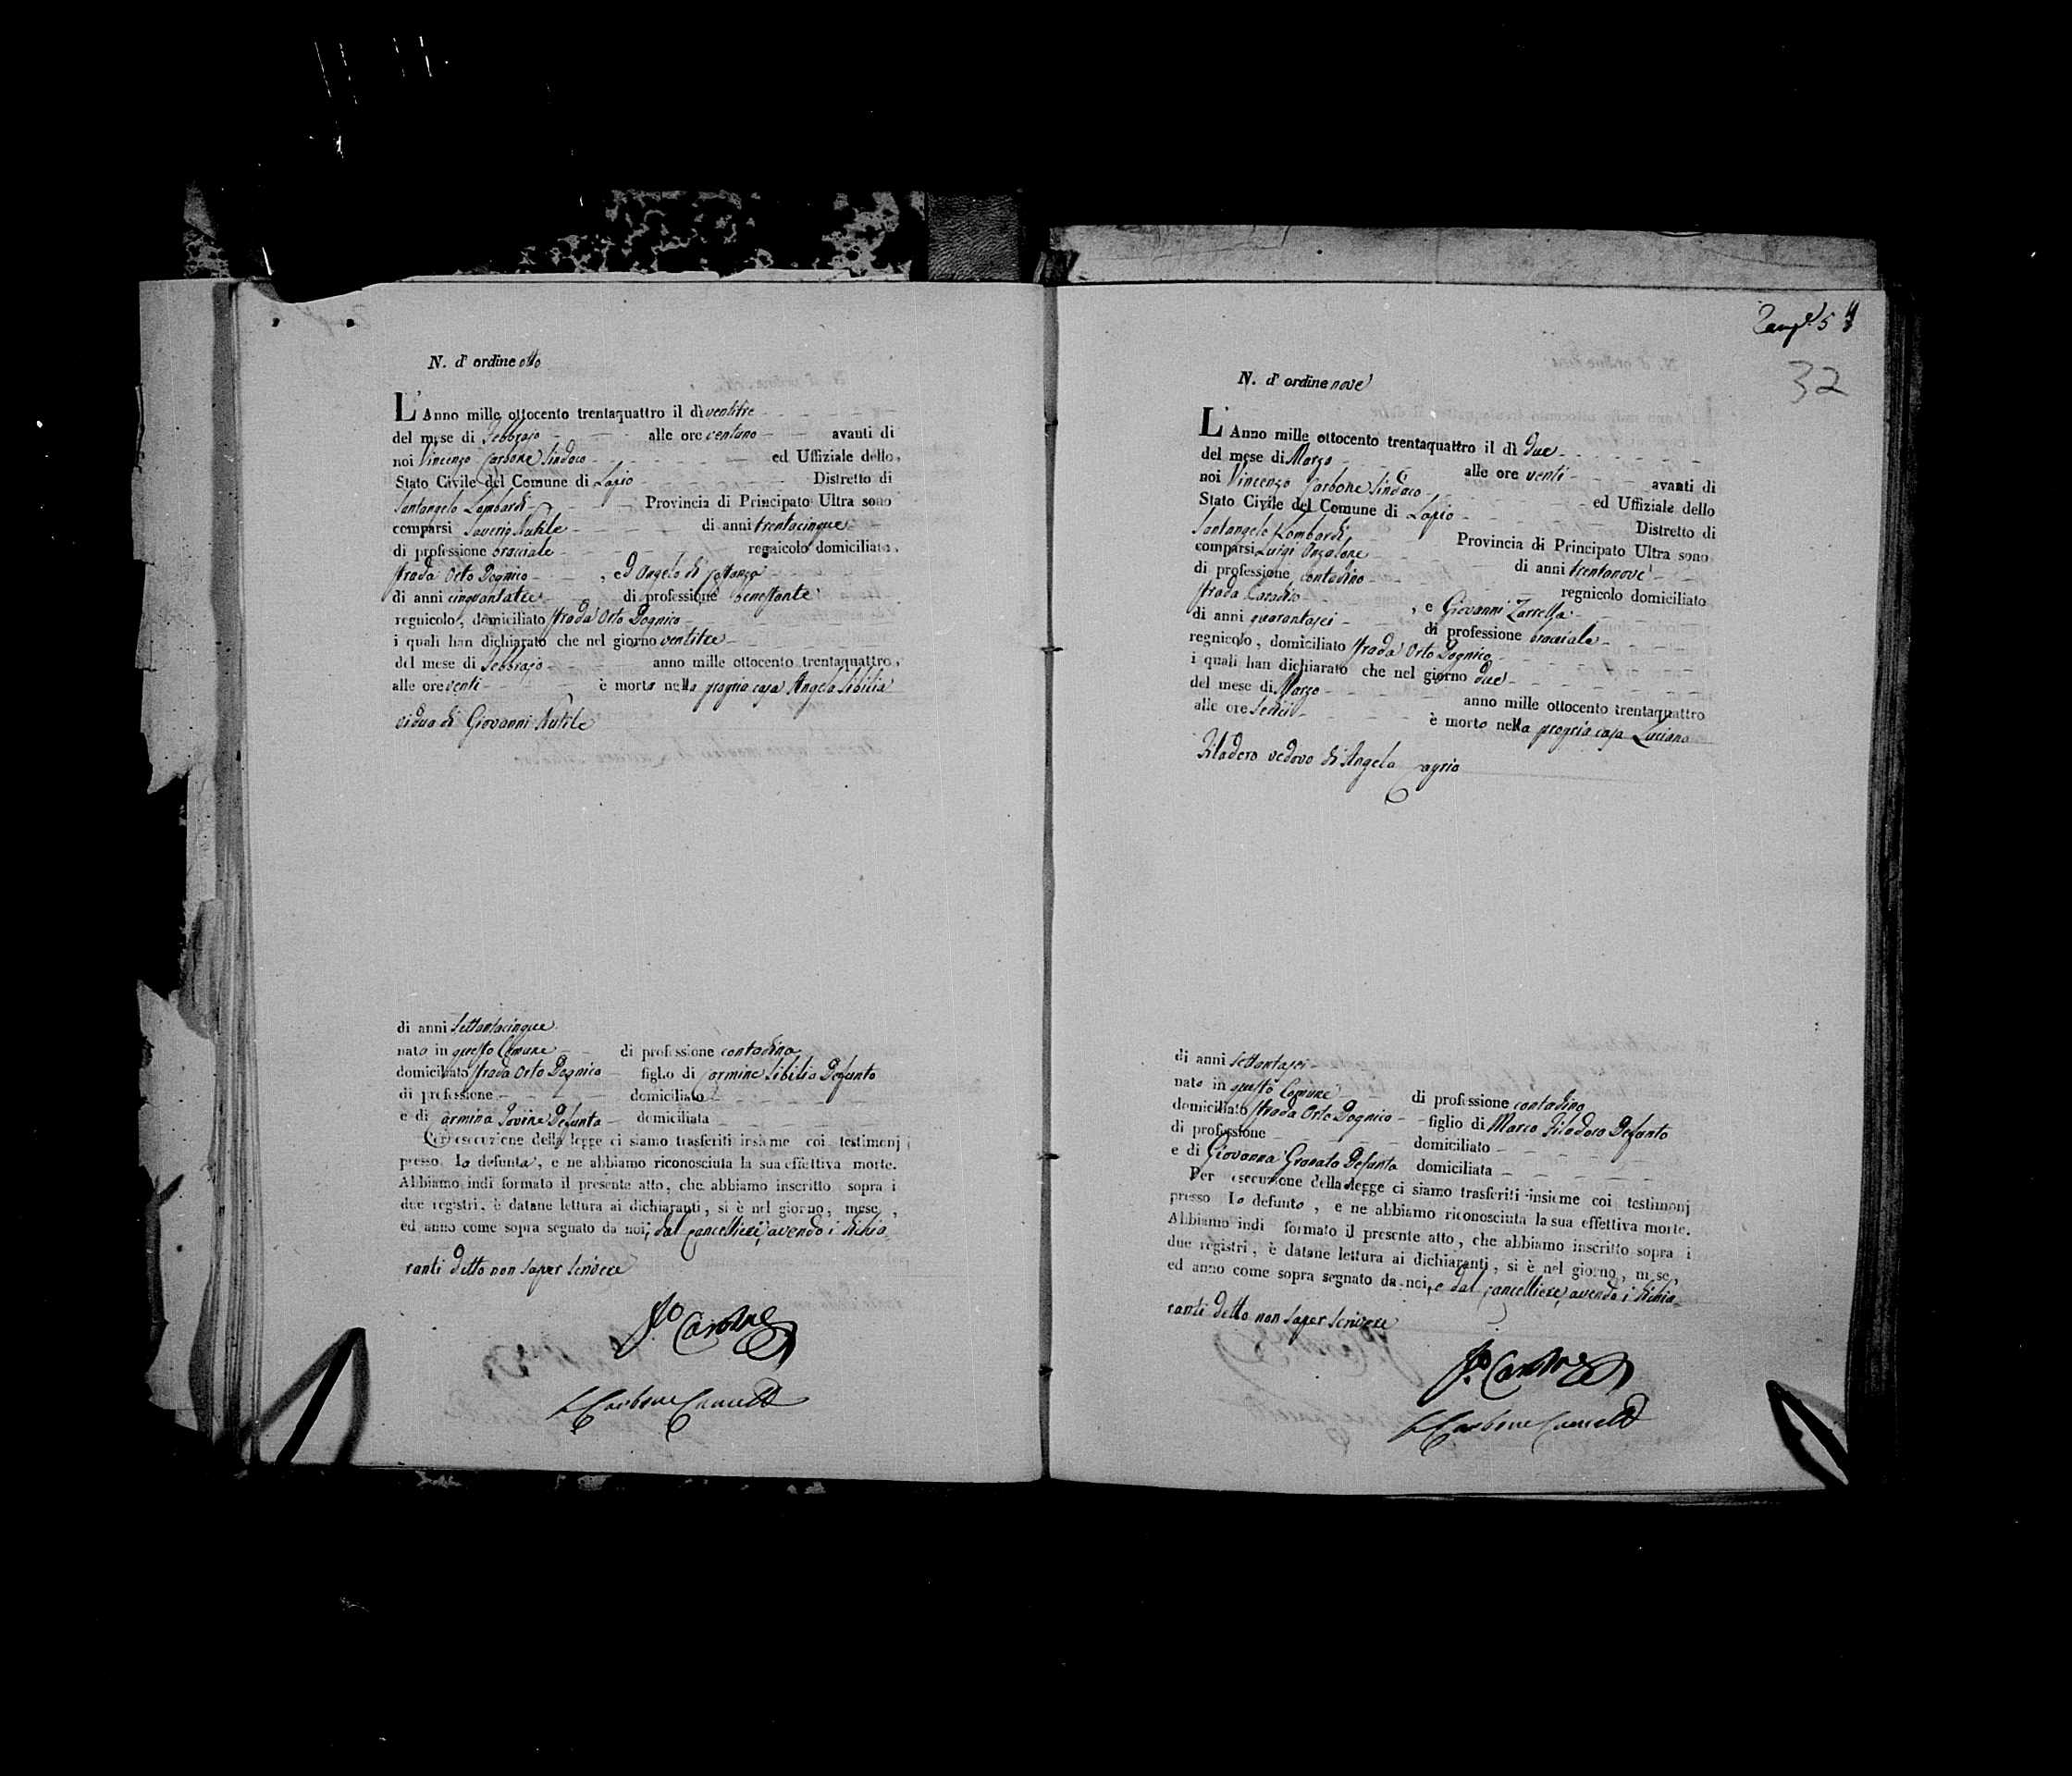 N. d' ordine otto
L' Anno mille ottocento trentaquattro il dì ventitre
del mese di Febbrajo alle ore ventuno avanti di
noi Vincenzo Carbone Sindaco ed Uffiziale dello
Stato Civile del Comune di Lapio Distretto di
Santangelo Lombardi Provincia di Principato Ultra sono
comparsi Saverio Nutile di anni trentacinque
di professione bracciale regnicolo domiciliato
strada Orto Dognico , ed Angelo di Costanza
di anni cinquantatre di professione benestante
regnicolo, domiciliato strada Orto Dognico
i quali han dichiarato che nel giorno ventitre
del mese di Febbrajo anno mille ottocento trentaquattro,
alle ore venti è morta nella propria casa Angela Sibilia
vidua di Giovanni Nutile
di anni settantacinque
nata in questo Comune di professione contadina
domiciliata strada Orto Dognico figlia di Carmine Sibilia Defunto
di professione domiciliato
e di Carmina Iovine Defunta domiciliata
Per esecuzione della legge ci siamo trasferiti insieme coi testimonj
presso la defunta, e ne abbiamo riconosciuta la sua effettiva morte.
Abbiamo indi formato il presente atto, che abbiamo inscritto sopra i
due registri, è datane lettura ai dichiaranti, si è nel giorno, mese,
ed anno come sopra segnato da noi, dal Cancelliere, avendo i dichia-
ranti detto non saper scrivere
Carbone
Carbone Cancell
5
32
N. d' ordine nove
L' Anno mille ottocento trentaquattro il dì due
del mese di Marzo alle ore venti avanti di
noi Vincenzo Carbone Sindaco ed Uffiziale dello
Stato Civile del Comune di Lapio Distretto di
Santangelo Lombardi Provincia di Principato Ultra sono
comparsi Luigi Anzalone di anni trentanove
di professione contadino regnicolo domiciliato
strada , e Giovanni Zarrella
di anni quarantasei di professione bracciale
regnicolo, domiciliato strada Orto Dognico
i quali han dichiarato che nel giorno due
del mese di Marzo anno mille ottocento trentaquattro
alle ore sedici è morto nella propria casa Luciano
Filadoro vedovo di Angela Caprio
di anni settantasei
nato in questo Comune di professione contadino
domiciliato strada Orto Dognico figlio di Marco Filadoro Defunto
di professione domiciliato
e di Giovanna Granato Defunta domiciliata
Per esecuzione della legge ci siamo trasferiti insieme coi testimonj
presso lo defunto, e ne abbiamo riconosciuta la sua effettiva morte.
Abbiamo indi formato il presente atto, che abbiamo inscritto sopra i
due registri, è datane lettura ai dichiaranti, si è nel giorno, mese,
ed anno come sopra segnato da noi, e dal Cancelliere, avendo i dichia-
ranti detto non saper scrivere
Carbone
Carbone Cancell